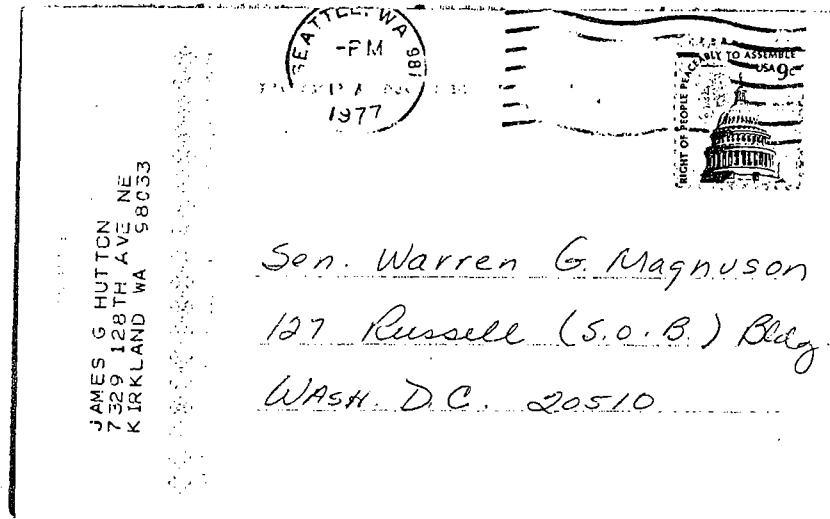 SEATTLE, WA 981
-PM
1977
RIGHT OF PEOPLE PEACEABLY TO ASSEMBLE
USA 9c
JAMES G HUTTON
7329 128TH AVE NE
KIRKLAND WA 98033
Sen. Warren G. Magnuson
127 Russell (S.O.B.) Bldg.
WASH. D.C. 20510